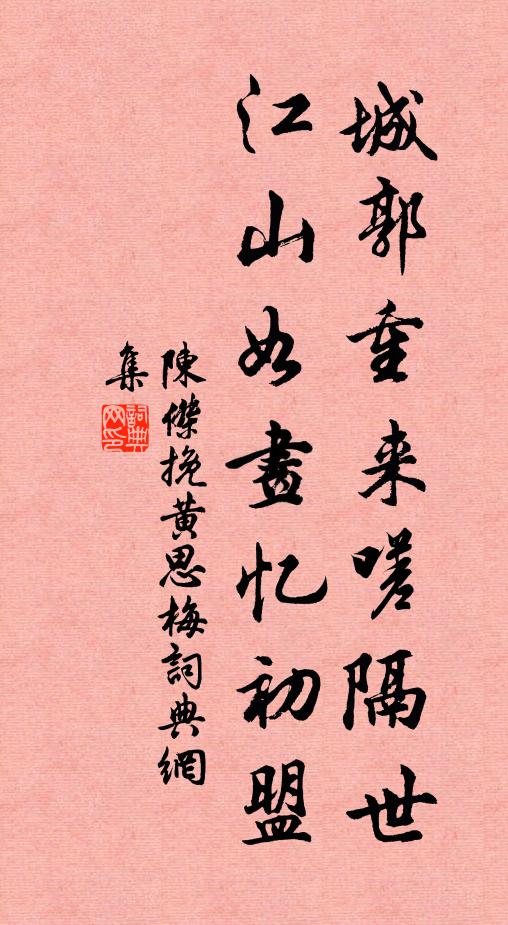 城郭重来嗟隔世
江山如畫忆初盟
陳傑挽黄思梅詞典網
集
詞典
网印